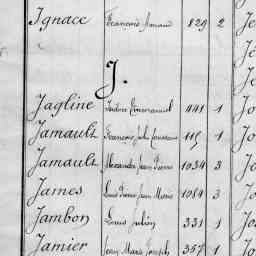 Ignace François Armand 829 2
J.
Jagline Isidore Emmanuel 441 1
Jamault François Julien 115 1
Jamault Alexandre Jean Pierre 1034 3
James Louis Pierre Jean Marie 1084 3
Jambon Louis Julien 331 1
Jamier Jean Marie Joseph 357 1